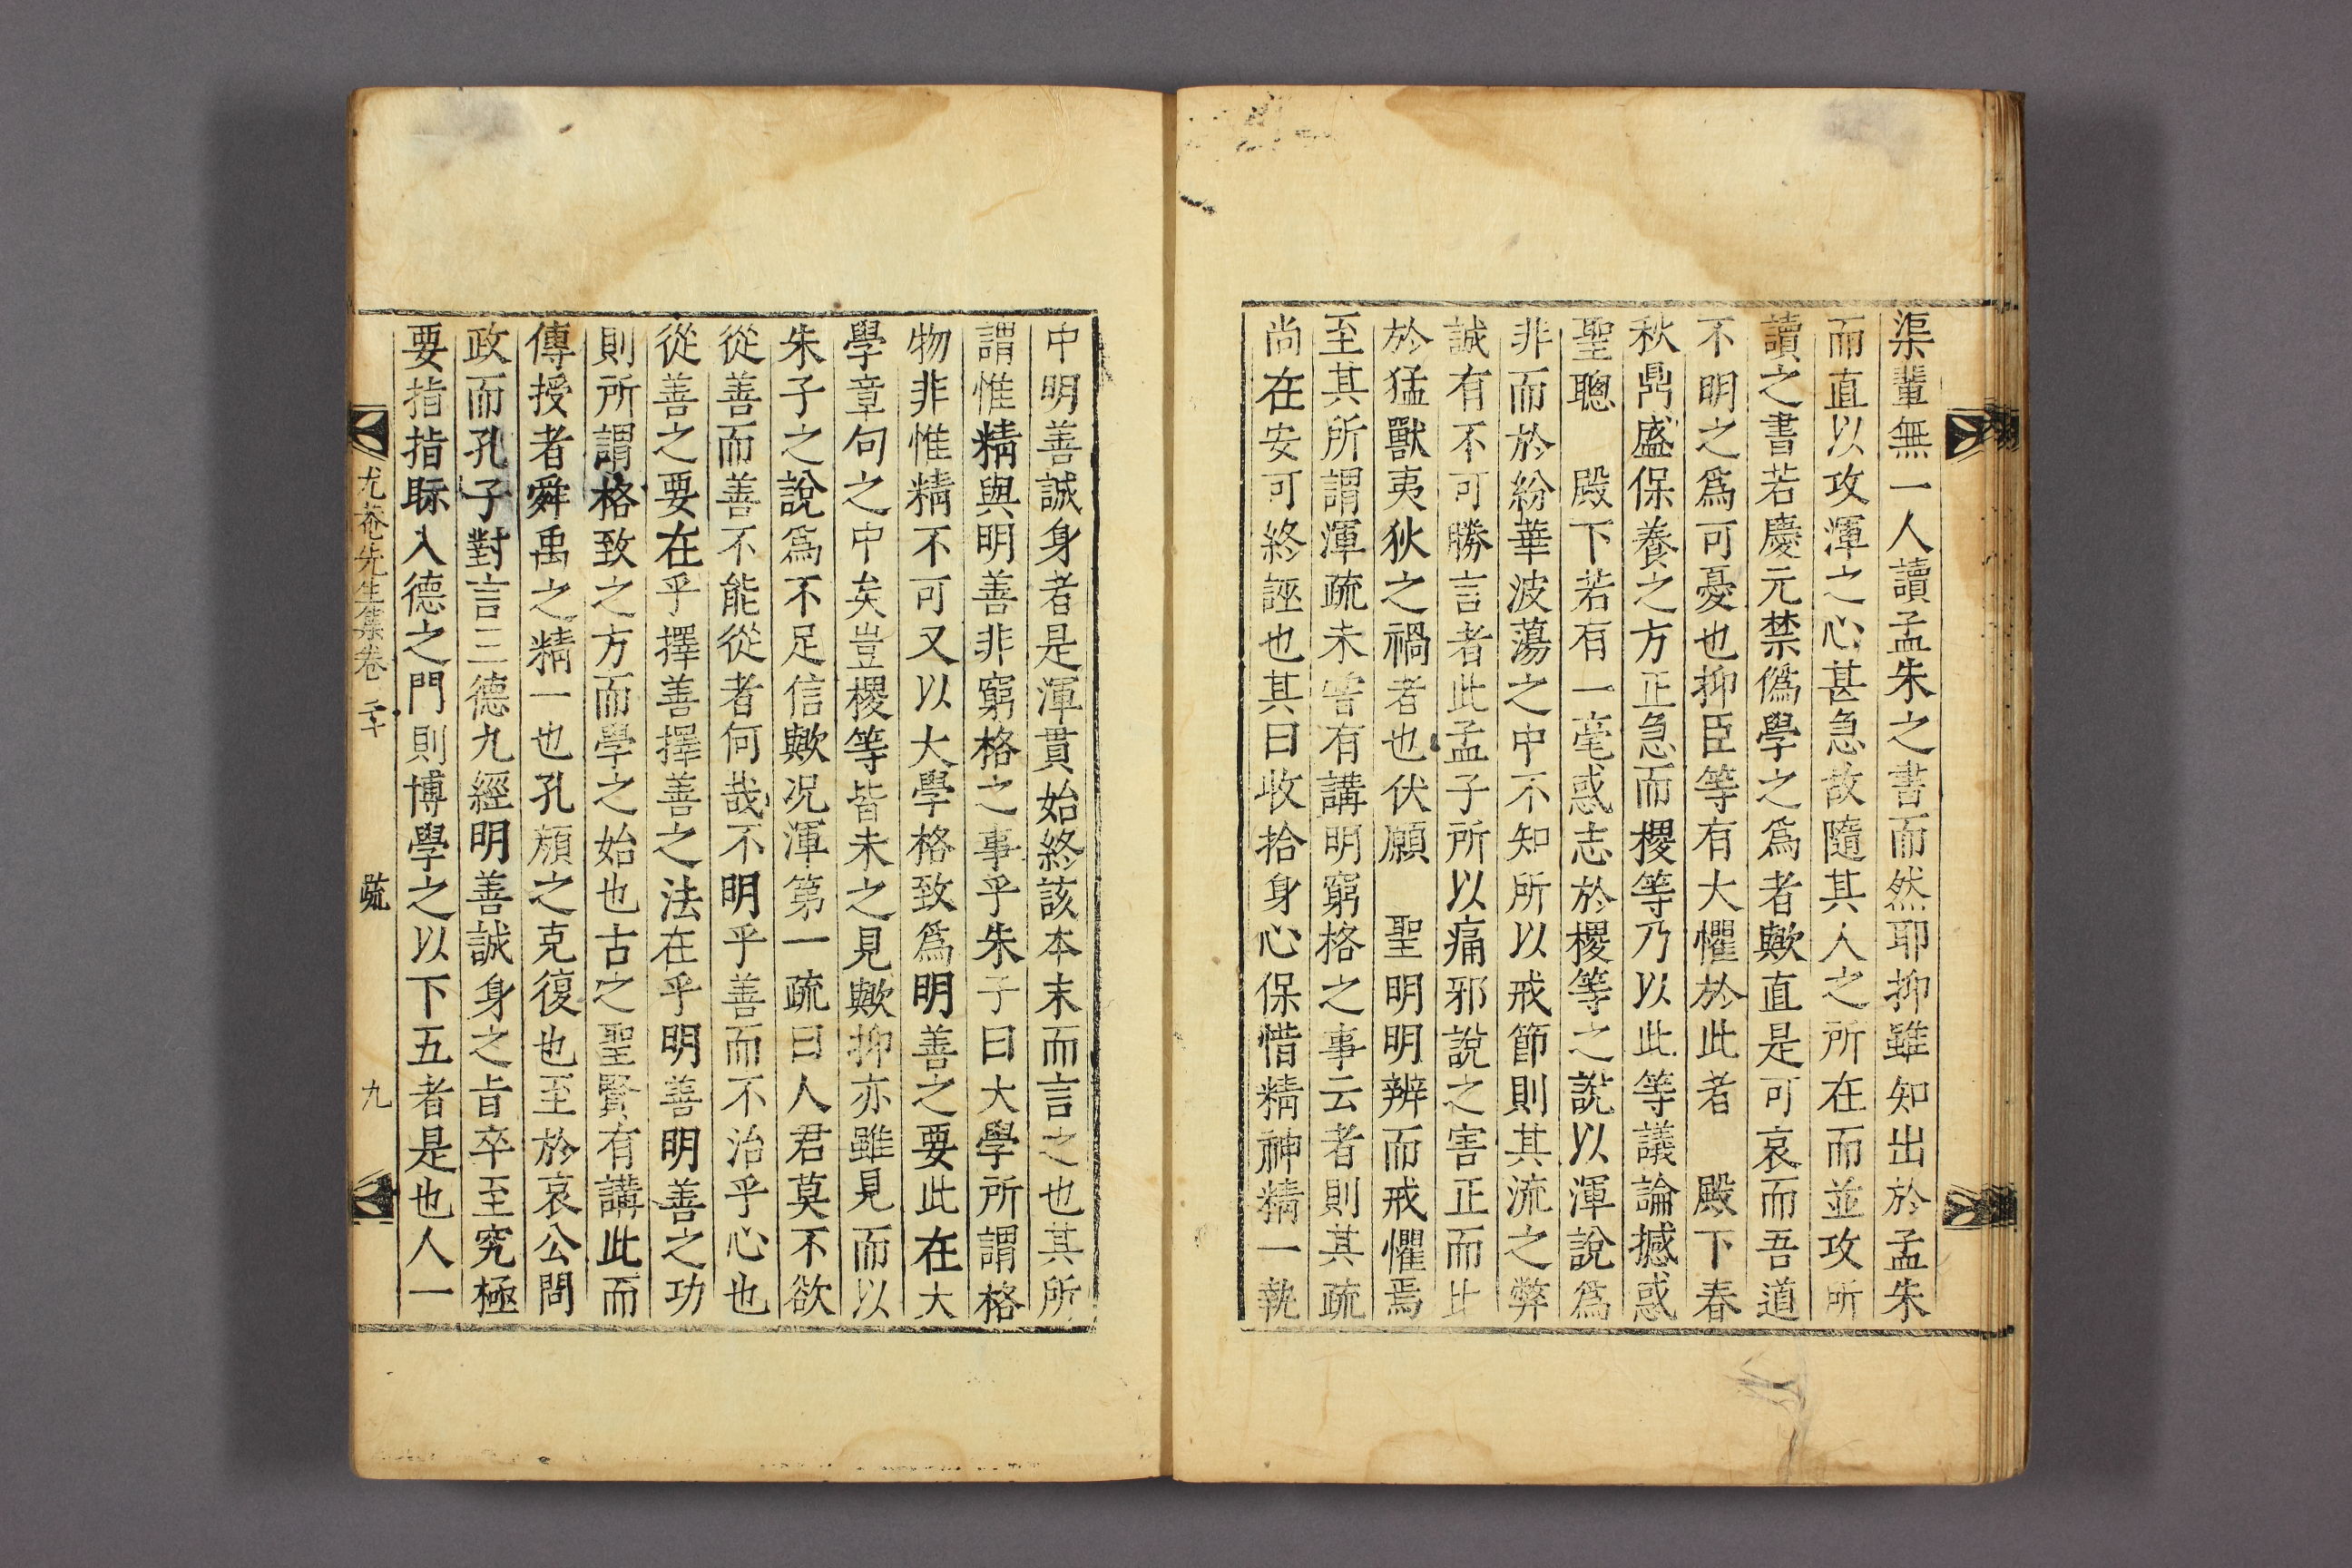 渠輩無一人讀孟朱之書而然耶抑雖知出於孟朱
而直以攻渾之心甚急故隨其人之所在而並攻所
讀之書若慶元禁僞學之爲者歟直是可哀而吾道
不明之爲可憂也抑臣等有大懼於此者 殿下春
秋鼎盛保養之方正急而㮨等乃以此等議論撼惑
聖聰 殿下若有一毫惑志於㮨等之說以渾說爲
非而於紛華波蕩之中不知所以戒節則其流之弊
誠有不可勝言者此孟子所以痛邪說之害正而比
於猛獸夷狄之禍者也伏願 聖明明辨而戒懼焉
至其所謂渾疏未嘗有講明窮格之事云者則其疏
尚在安可終誣也其曰收拾身心保惜精神精一執
中明善誠身者是渾貫始終該本末而言之也其所
謂惟精與明善非窮格之事乎朱子曰大學所謂格
物非惟精不可又以大學格致爲明善之要此在大
學章句之中矣豈㮨等皆未之見歟抑亦雖見而以
朱子之說爲不足信歟况渾第一疏曰人君莫不欲
從善而善不能從者何哉不明乎善而不治乎心也
從善之要在乎擇善擇善之法在乎明善明善之功
則所謂格致之方而學之始也古之聖賢有講此而
傳授者舜禹之精一也孔顏之克復也至於哀公問
政而孔子對言三德九經明善誠身之旨卒至究極
要指指眎入德之門則博學之以下五者是也人一
尤菴先生集卷二十 疏 九